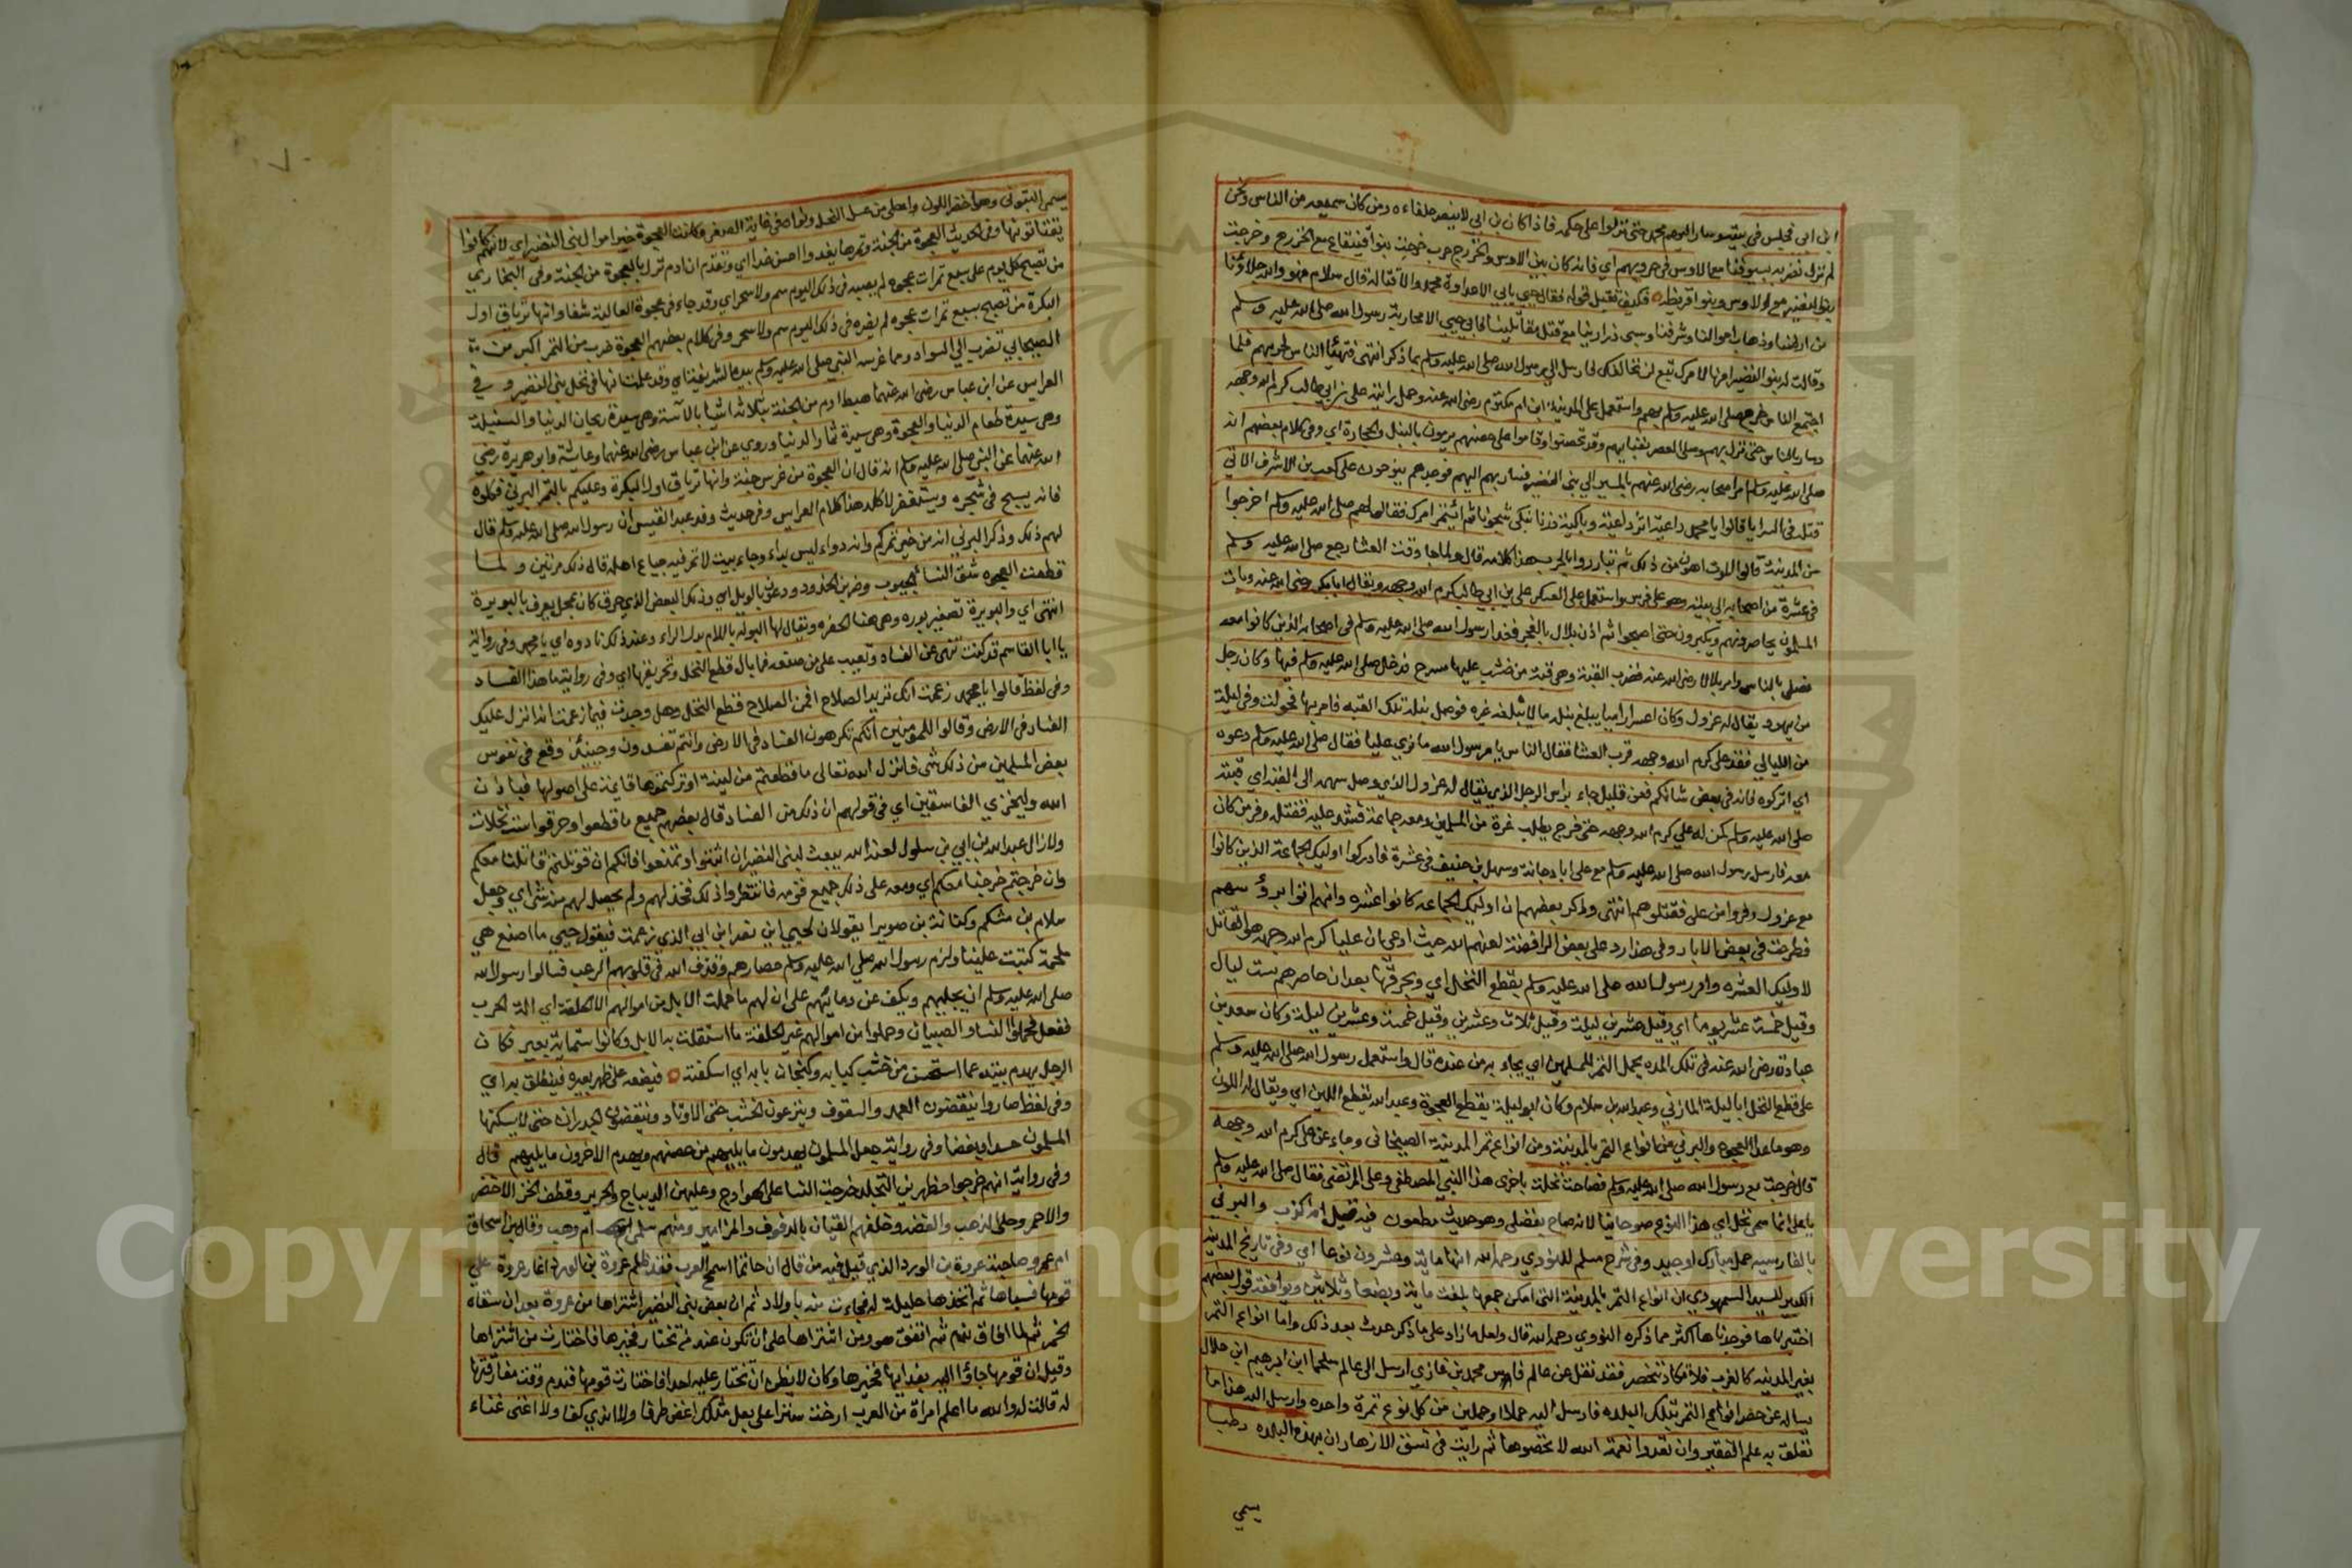 ابن ابي فجلس في بيته وسار اليهم محمد حتى نزلوا على حكمه فاذا كان بن ابي لا ينصر حلفاءه ومن كان يمنعه من الناس ونحن
لم نزل نضربه بسيوفنا مع الاوس في حروبهم اي فانه كان بين الاوس والخزرج حرب خرجت بنوا قينقاع مع الخزرج وخرجت
بنوا النضير مع الاوس وبنوا قريظة فكيف نقبل قوله فقال حيي يابي الا عداوة محمد والا قتاله قال سلام فهو والله جلاؤنا
من ارضنا وذهاب اموالنا وشرفنا وسبي ذرارينا مع قتل مقاتلينا فابي حيي الا محاربة رسول الله صلى الله عليه وسلم
وقالت له بنوا النضير امرنا لامرك تبع لن نخالفك فارسل الى رسول الله صلى الله عليه وسلم بما ذكر انتهى فتهيأ الناس لحربهم فلما
اجتمع الناس خرج صلى الله عليه وسلم بهم واستعمل على المدينة ابن ام مكتوم رضي الله عنه وحمل رايته علي بن ابي طالب كرم الله وجهه
وسار بالناس حتى نزل بهم وصلى العصر بفنايهم وقد تحصنوا وقاموا على حصنهم يرمون بالنبل والحجارة اي وفي كلام بعضهم انه
صلى الله عليه وسلم امر اصحابه رضي الله عنهم بالمسير الى بني النضير فسار بهم اليهم فوجدهم ينوحون على كعب بن الاشرف الاتي
قتله في السرايا قالوا يا محمد داعية اثر داعية وباكية ذرنا نبكي شجونا ثم ائتمر امرك فقال لهم صلى الله عليه وسلم اخرجوا
من المدينة قالوا الموت اهون من ذلك ثم تبادروا بالحرب هذا كلامه قال ولما جا وقت العشا رجع صلى الله عليه وسلم
في عشرة من اصحابه الى بيته وهو على فرس واستعمل على العسكر علي بن ابي طالب كرم الله وجهه ويقال ابا بكر رضي الله عنه وبات
المسلمون يحاصرونهم ويكبرون حتى اصبحوا ثم اذن بلال بالفجر فغدا رسول الله صلى الله عليه وسلم في اصحابه الذين كانوا معه
فصلى بالناس وامر بلالا رضي الله عنه فضرب القبة وهي قبة من خشب عليها مسوح فدخل صلى الله عليه وسلم فيها وكان رجل
من يهود يقال له عزول وكان اعسر راميا يبلغ نبله ما لا يبلغه غيره فوصل نبله تلك القبه فامر بها فحولت وفي ليلة
من الليالي فقد علي كرم الله وجهه قرب العشا فقال الناس يا رسول الله ما نري عليا فقال صلى الله عليه وسلم دعوه
اي اتركوه فانه في بعض شانكم فعن قليل جاء براس الرجل الذي يقال له عزول الذي وصل سهمه الى القبة اي قبته
صلى الله عليه وسلم كمن له علي كرم الله وجهه حتى خرج يطلب غرة من المسلمين ومعه جماعة فشد عليه فقتله وفر من كان
معه فارسل رسول الله صلى الله عليه وسلم مع علي ابا دجانة وسهل بن حنيف في عشرة فادركوا اوليك الجماعة الذين كانوا
مع عزول وفروا من علي فقتلوهم انتهى وذكر بعضهم ان اوليك الجماعه كانوا عشره وانهم اتوا برؤسهم
فطرحت في بعض الابار وفي هذا رد على بعض الرافضة لعنهم الله حيث ادعي ان عليا كرم الله وجهه هو القاتل
لاوليك العشره وامر رسول الله صلى الله عليه وسلم بقطع النخل اي وبحرقها بعد ان حاصرهم ست ليال
وقيل خمسة عشر يوما اي وقيل عشرين ليلة وقيل ثلاث وعشرين وقيل خمسة وعشرين ليلة وكان سعد بن
عبادة رضي الله عنه في تلك المده يحمل التمر للمسلمين اي يجاء به من عنده قال واستعمل رسول الله صلى الله عليه وسلم
على قطع النخل ابا ليلة المازني وعبد الله بن سلام وكان ابو ليلة يقطع العجوة وعبد الله يقطع اللين اي ويقال له اللون
وهو ما عدا العجوه والبرني من انواع التمر بالمدينة ومن انواع تمر المدينة الصيحاني وجاء عن علي كرم الله وجهه
قال خرجت مع رسول الله صلى الله عليه وسلم فصاحت نخلة باخرى هذا النبي المصطفى وعلي المرتضى فقال صلى الله عليه وسلم
يا علي انما سمي نخل اي هذا النوع صيحانيا لانه صاح بفضلي وهو حديث مطعون فيه قيل انه كذب والبرني
بالفارسيه حمل مبارك او جيد وفي شرح مسلم للنووي رحمه الله انها ماية وعشرون نوعا اي وفي تاريخ المدينة
الكبير للسيد السمهودي ان انواع التمر بالمدينة التي امكن جمعها بلغت ماية وبضعا وثلاثين ويوافقه قول بعضهم
اختبرناها فوجدناها اكثر مما ذكره النووي رحمه الله قال ولعل ما زاد على ما ذكر حدث بعد ذلك واما انواع التمر
بغير المدينه كالمغرب فلا تكاد تنحصر فقد نقل عن عالم فاس محمد بن غازي ارسل الى عالم سلجماسة ابن ابرهيم ابن هلال
يساله عن حصر انواع التمر بتلك البلده فارسل اليه حملا او حملين من كل نوع تمرة واحده وارسل اليه هذا ما
تعلق به علم الفقير وان تعدوا نعمة الله لا تحصوها ثم رايت في نسق الازهار ان بهذه البلده رطبا
يسمى
يسمى البتوني وهو اخضر اللون واحلى من عسل النحل ونواه في غاية الصغر وكانت العجوة خير اموال بني النضير اي لانهم كانوا
يقتاتونها وفي الحديث العجوة من الجنة وتمرها يغدو احسن غدا اي وتقدم ان ادم نزل بالعجوة من الجنة وفي البخاري
من تصبح كل يوم على سبع تمرات عجوه لم يصبه في ذلك اليوم سم ولا سحر اي وقد جاء في عجوة العالية شفا وانها ترياق اول
البكرة من تصبح بسبع تمرات عجوه لم يضره في ذلك اليوم سم ولا سحر وفي كلام بعضهم العجوة ضرب من التمر اكبر من
الصيحاني تضرب الى السواد وما غرسه النبي صلى الله عليه وسلم بيده الشريفة اي وقد علمت انها في نخل بني النضير و في
العرايس عن ابن عباس رضي الله عنهما هبط ادم من الجنة بثلاثة اشيا بالآسة وهي سيدة ريحان الدنيا والسنبلة
وهي سيدة طعام الدنيا والعجوة وهي سيدة ثمار الدنيا وروي عن ابن عباس رضي الله عنهما وعايشة وابو هريرة رضي
الله عنهما عن النبي صلى الله عليه وسلم انه قال ان العجوة من غرس جنة وانها ترياق اول البكرة وعليكم بالتمر البرني فكلوه
فانه يسبح في شجره ويستغفر لاكله هذا كلام العرايس وفي حديث وفد عبد القيس ان رسول الله صلى الله عليه وسلم قال
لهم ذلك وذكر البرني انه من خير تمركم وانه دواء ليس بداء وجاء بيت لا تمر فيه جياع اهله قال ذلك مرتين ولما
قطعت العجوه شق النسا الجيوب وضربن الخدود ودعون بالويل اي وذلك البعض الذي حرق كان بمحل يعرف بالبويرة
انتهى اي والبويرة تصغير بوره وهي هنا الحفره ويقال لها البوله باللام بدل الراء وعند ذلك نادوه اي يا محمد وفي رواية
يا ابا القاسم قد كنت تنهى عن الفساد وتعيب على من صنعه فما بال قطع النخل وتحريقها اي وفي رواية ما هذا الفساد
وفي لفظ قالوا يا محمد زعمت انك تريد الصلاح افمن الصلاح قطع النخل وهل وجدت فيما زعمت انه انزل عليك
الفساد في الارض وقالوا للمؤمنين انكم تكرهون الفساد في الارض وانتم تفسدون وحينئذ وقع في نفوس
بعض المسلمين من ذلك شي فانزل الله تعالى ما قطعتم من لينة او تركتموها قايمة على اصولها فباذن
الله وليخزي الفاسقين اي في قولهم ان ذلك من الفساد قال بعضهم جميع ما قطعوا وحرقوا ست نخلات
ولا زال عبد الله بن ابي بن سلول لعنه الله يبعث لبني النضير ان اثبتوا وتمنعوا فانكم ان قوتلتم قاتلنا معكم
وان خرجتم خرجنا معكم اي ومعه على ذلك جميع قومه فانتظروا ذلك فخذلهم ولم يحصل لهم منه شي اي وجعل
سلام بن مشكم وكنانة بن صويرا يقولان لحيي اين نصر ابن ابي الذي زعمت فيقول حيي ما اصنع هي
ملحمة كتبت علينا ولزم رسول الله صلى الله عليه وسلم حصارهم وقذف الله في قلوبهم الرعب فسالوا رسول الله
صلى الله عليه وسلم ان يجليهم ويكف عن دمائهم على ان لهم ما حملت الابل من اموالهم الا الحلقة اي الة الحرب
ففعل فحملوا النسا والصبيان وحملوا من اموالهم غير الحلقة ما استقلت به الابل وكانوا ستماية بعير فكان
الرجل يهدم بيته عما استحسن من خشب كبابه وكنجاف بابه اي اسكفته فيضعه على ظهر بعيره فينطلق به اي
وفي لفظ صاروا ينقضون العمد والسقوف وينزعون الخشب حتى الاوتاد وينقضون الجدران حتى لا يسكنها
المسلمون حسدا وبغضا وفي رواية جعل المسلمون يهدمون ما يليهم من حصنهم ويهدم الاخرون ما يليهم قال
وفي رواية انهم خرجوا مظهرين التجلد خرجت النسا على الهوادج وعليهن الديباج والحرير وقطف الخز الاخضر
والاحمر وحلي الذهب والفضه وخلفهم القيان بالدفوف والمزامير ومنهم سلمى ام وهب وقال بن اسحاق
ام عمرو صاحبة عروة بن الورد الذي قيل فيه من قال ان حاتما اسمح العرب فقد ظلم عروة بن الورد اغار عروة على
قومها فسباها ثم اتخذها حليلة له فجاءت منه باولاد ثم ان بعض بني النضير اشتراها من عروة بعد ان سقاه
الخمر ثم لما افاق ندم ثم اتفق هو ومن اشتراها على ان تكون عند من تختار فخيرها فاختارت من اشتراها
وقيل ان قومها جاؤا اليه بفدايها فخيرها وكان لا يظن ان تختار عليه احدا فاختارت قومها فندم وقت مفارقتها
له قالت له والله ما اعلم امراة من العرب ارخت سترا على بعل مثلك اغض طرفا ولا اندي كفا ولا اغنى غناء